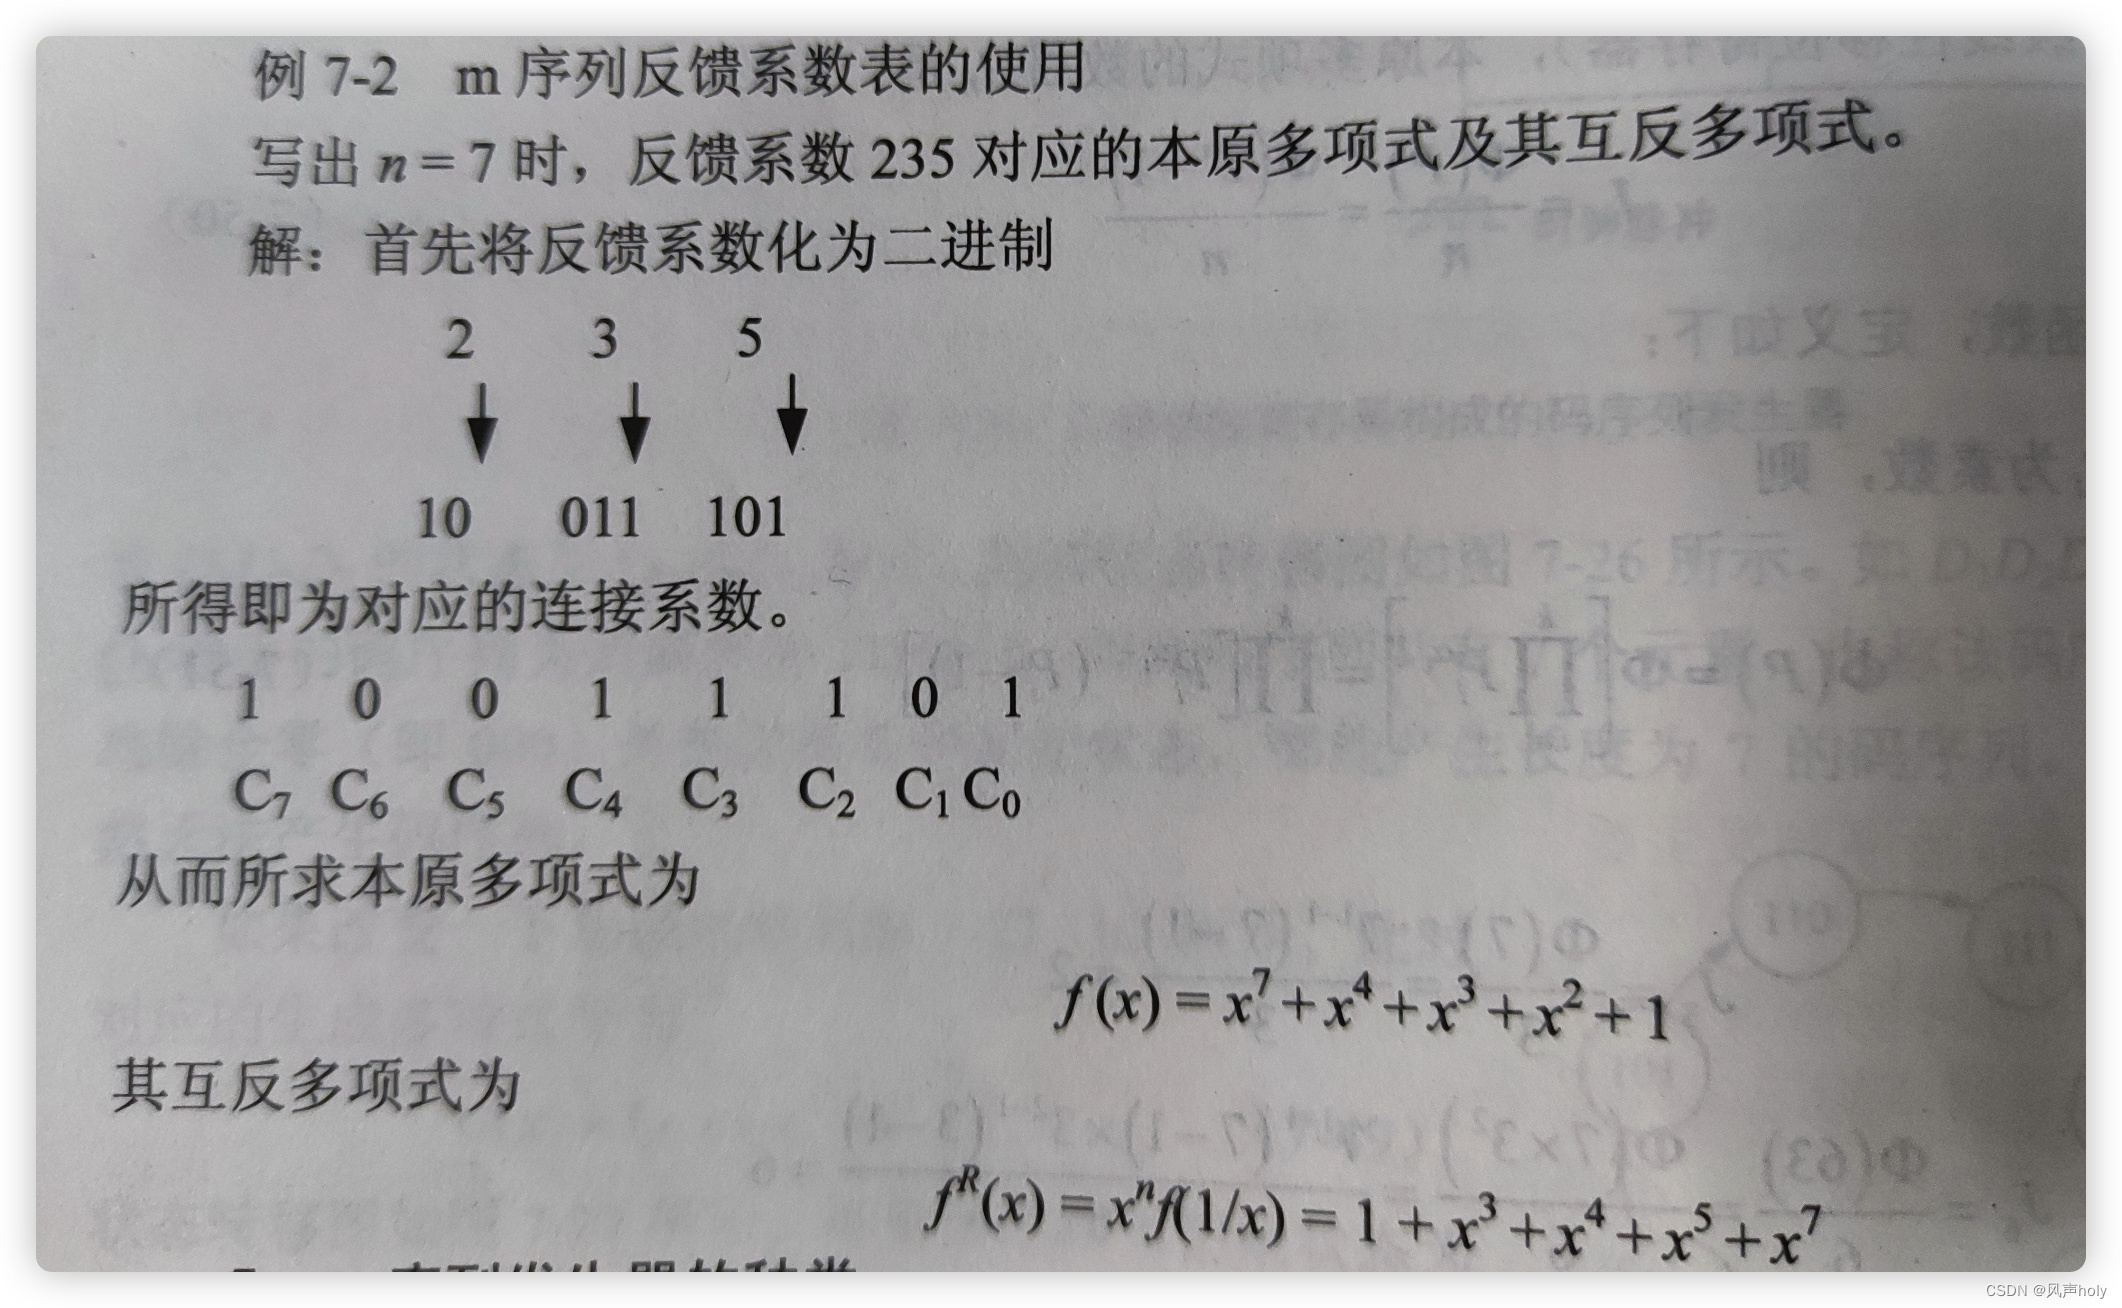 例 7-2 m 序列反馈系数表的使用
写出 n = 7 时，反馈系数 235 对应的本原多项式及其互反多项式。
解：首先将反馈系数化为二进制
2 3 5
10 011 101
所得即为对应的连接系数。
1 0 0 1 1 1 0 1
C₇ C₆ C₅ C₄ C₃ C₂ C₁ C₀
从而所求本原多项式为
f(x) = x⁷ + x⁴ + x³ + x² + 1
其互反多项式为
fᴿ(x) = xⁿf(1/x) = 1 + x³ + x⁴ + x⁵ + x⁷
CSDN @风声holy